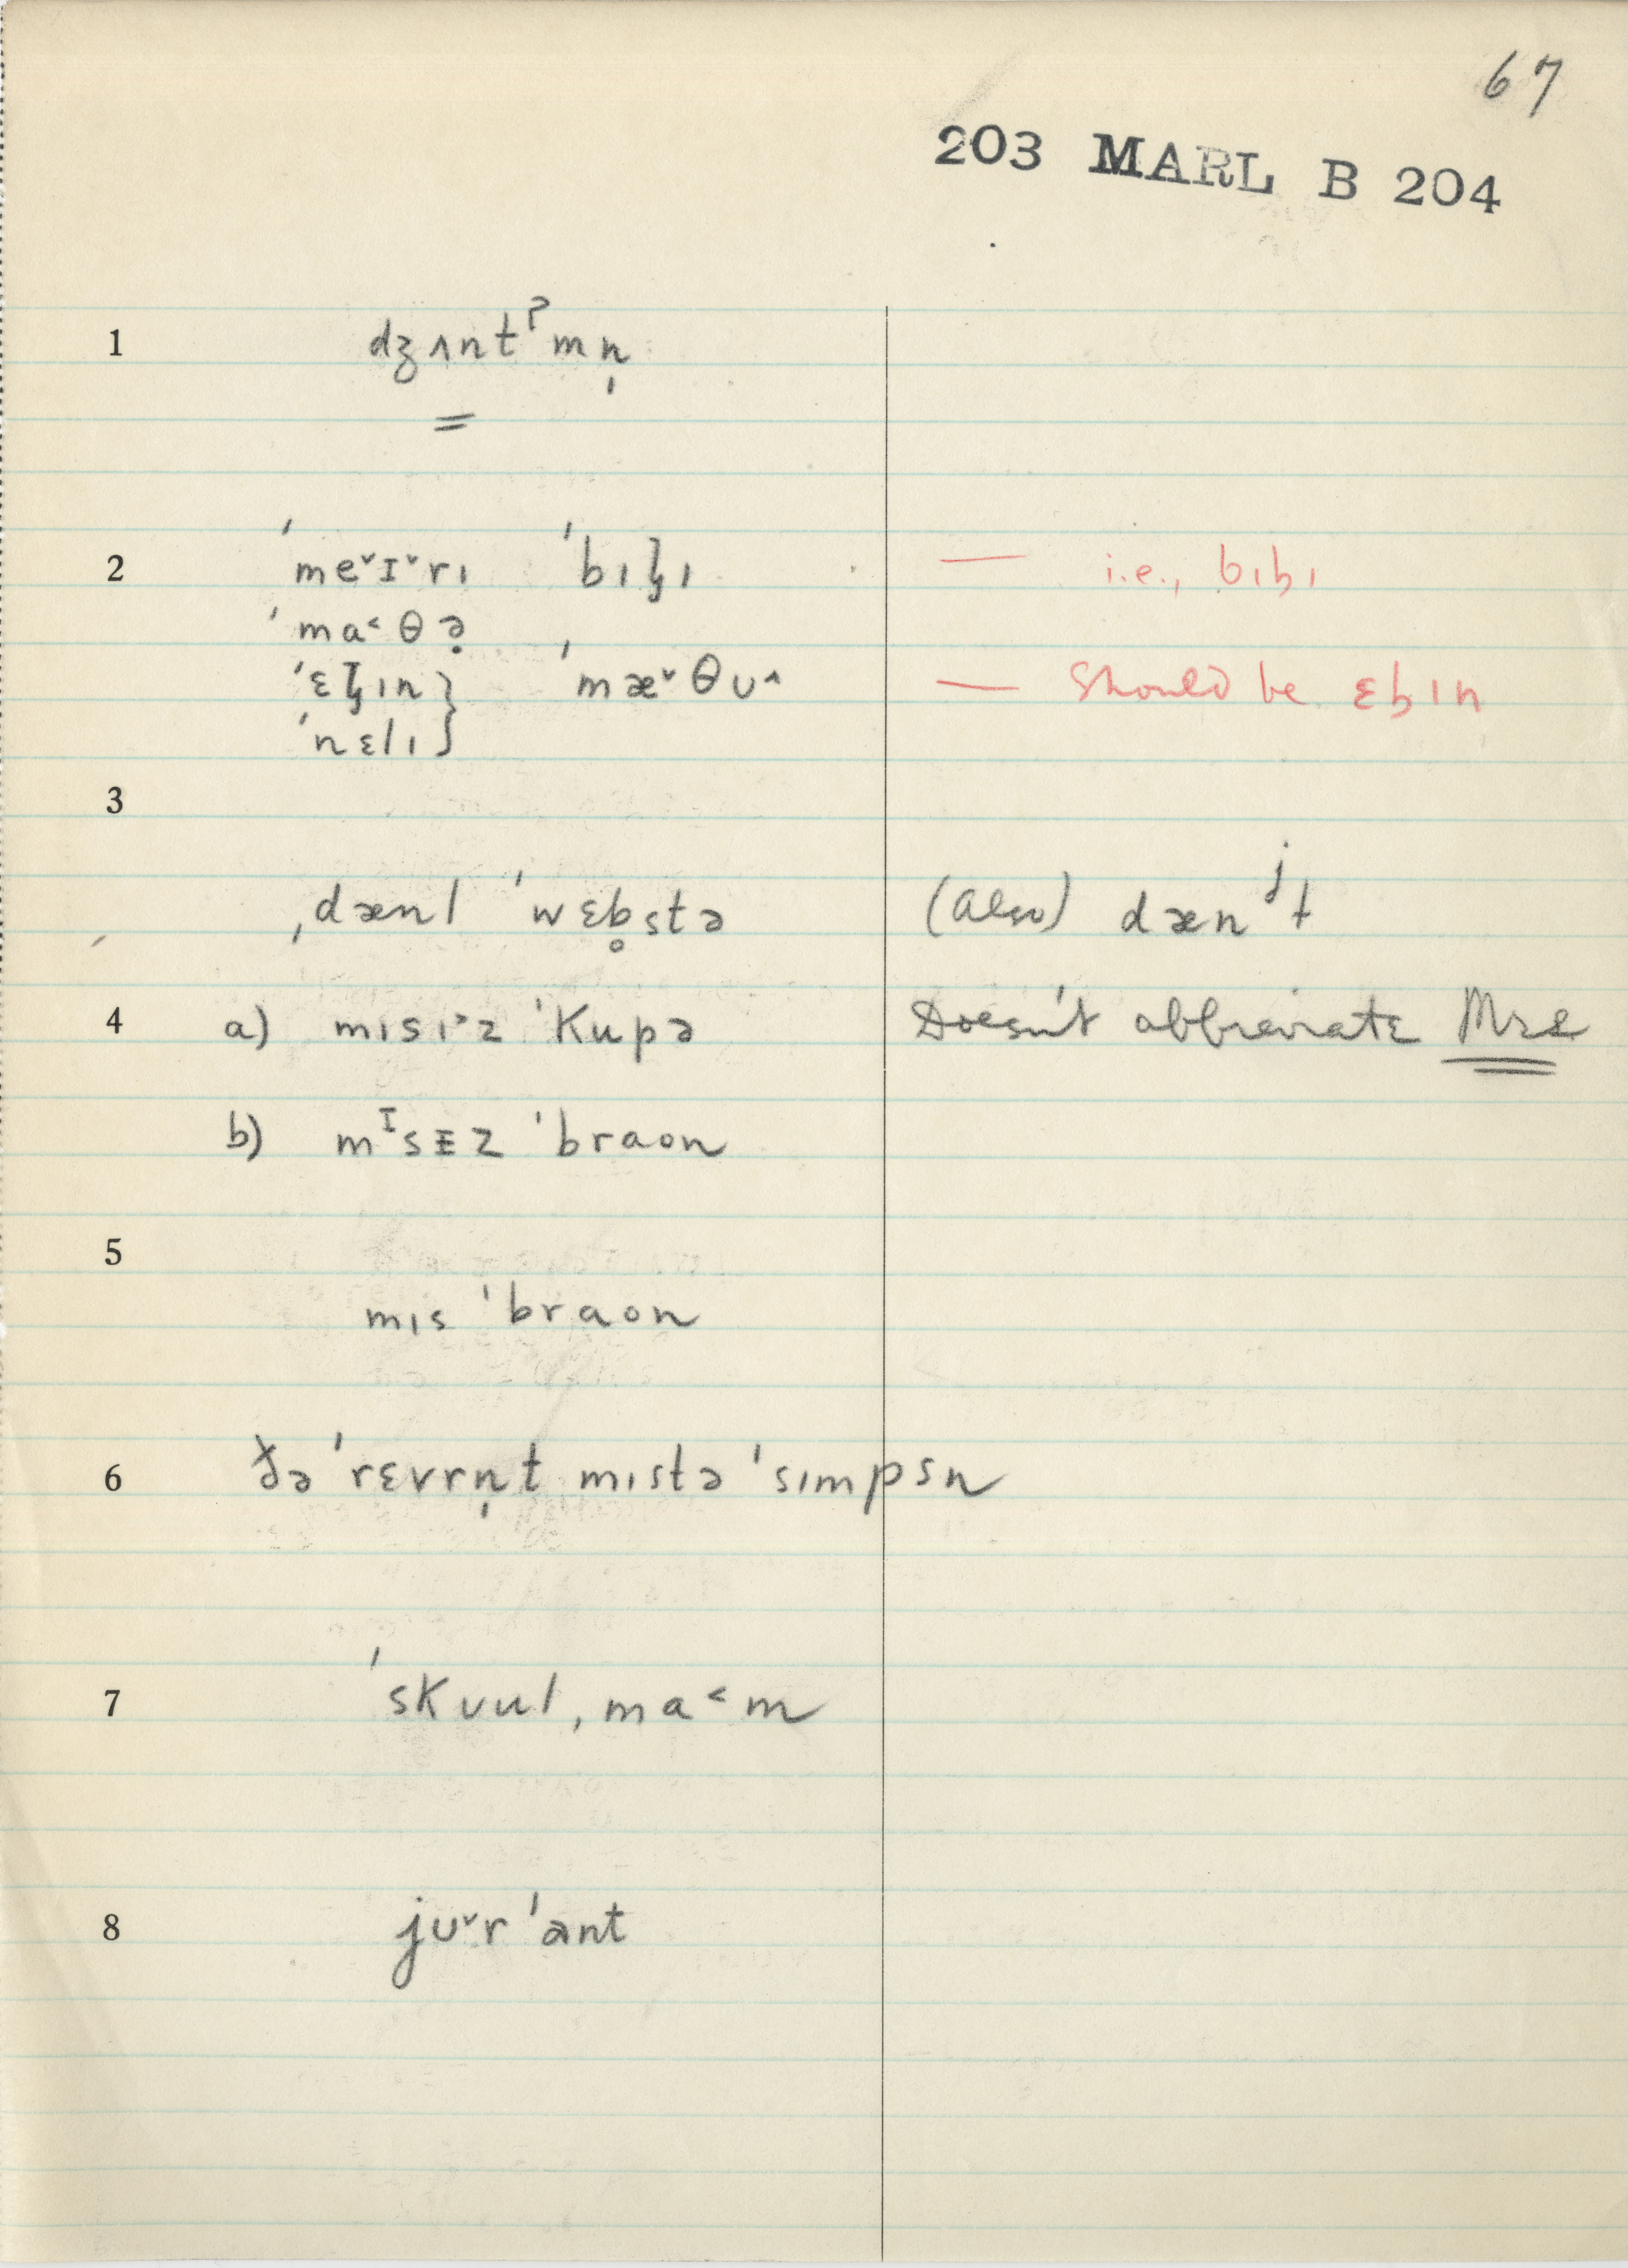 67
203 MARL B 204
1 dʒʌntˀmn̩
=
2 ˈmeˇɪˇrı ˈbıɮı — i.e., bıƀı
ˈma˂θə̣
ˈɛɮın } ˈmæˇθʊ^ — Should be ɛƀın
ˈnɛlı }
3
ˌdænl ˈwɛb̥stə (also) dænʲɫ
4 a) mısı˃z ˈkupə Doesn't abbreviate Mrs
b) mᴵsɪz ˈbraon
5
mıs ˈbraon
6 ðə ˈrɛvrn̩t mıstə ˈsımpsn
7 ˈskʊulˌma˂m
8 jʊˇr ˈant